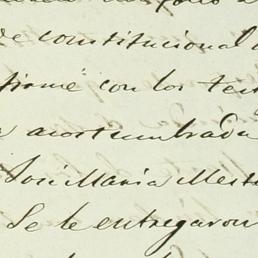 de constitucional
firmé con los tes
acostumbrada
José Maria Mest
Se le entregaron